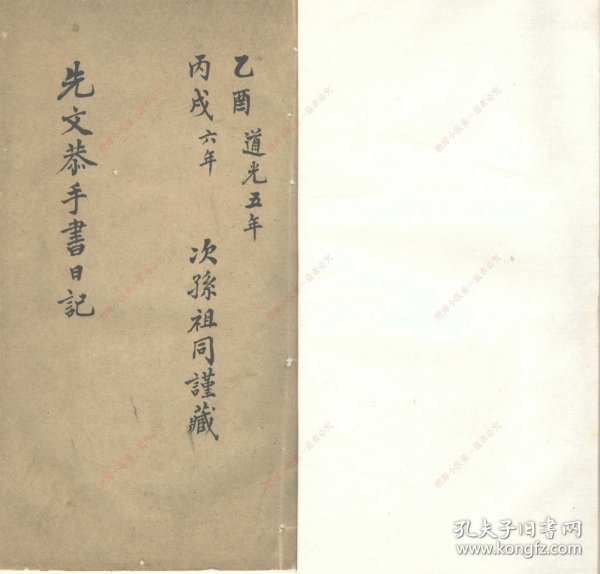 乙酉 道光五年
丙戌 六年
次孫祖同謹藏
先文恭手書日記
孔夫子旧书网
www.kongfz.com